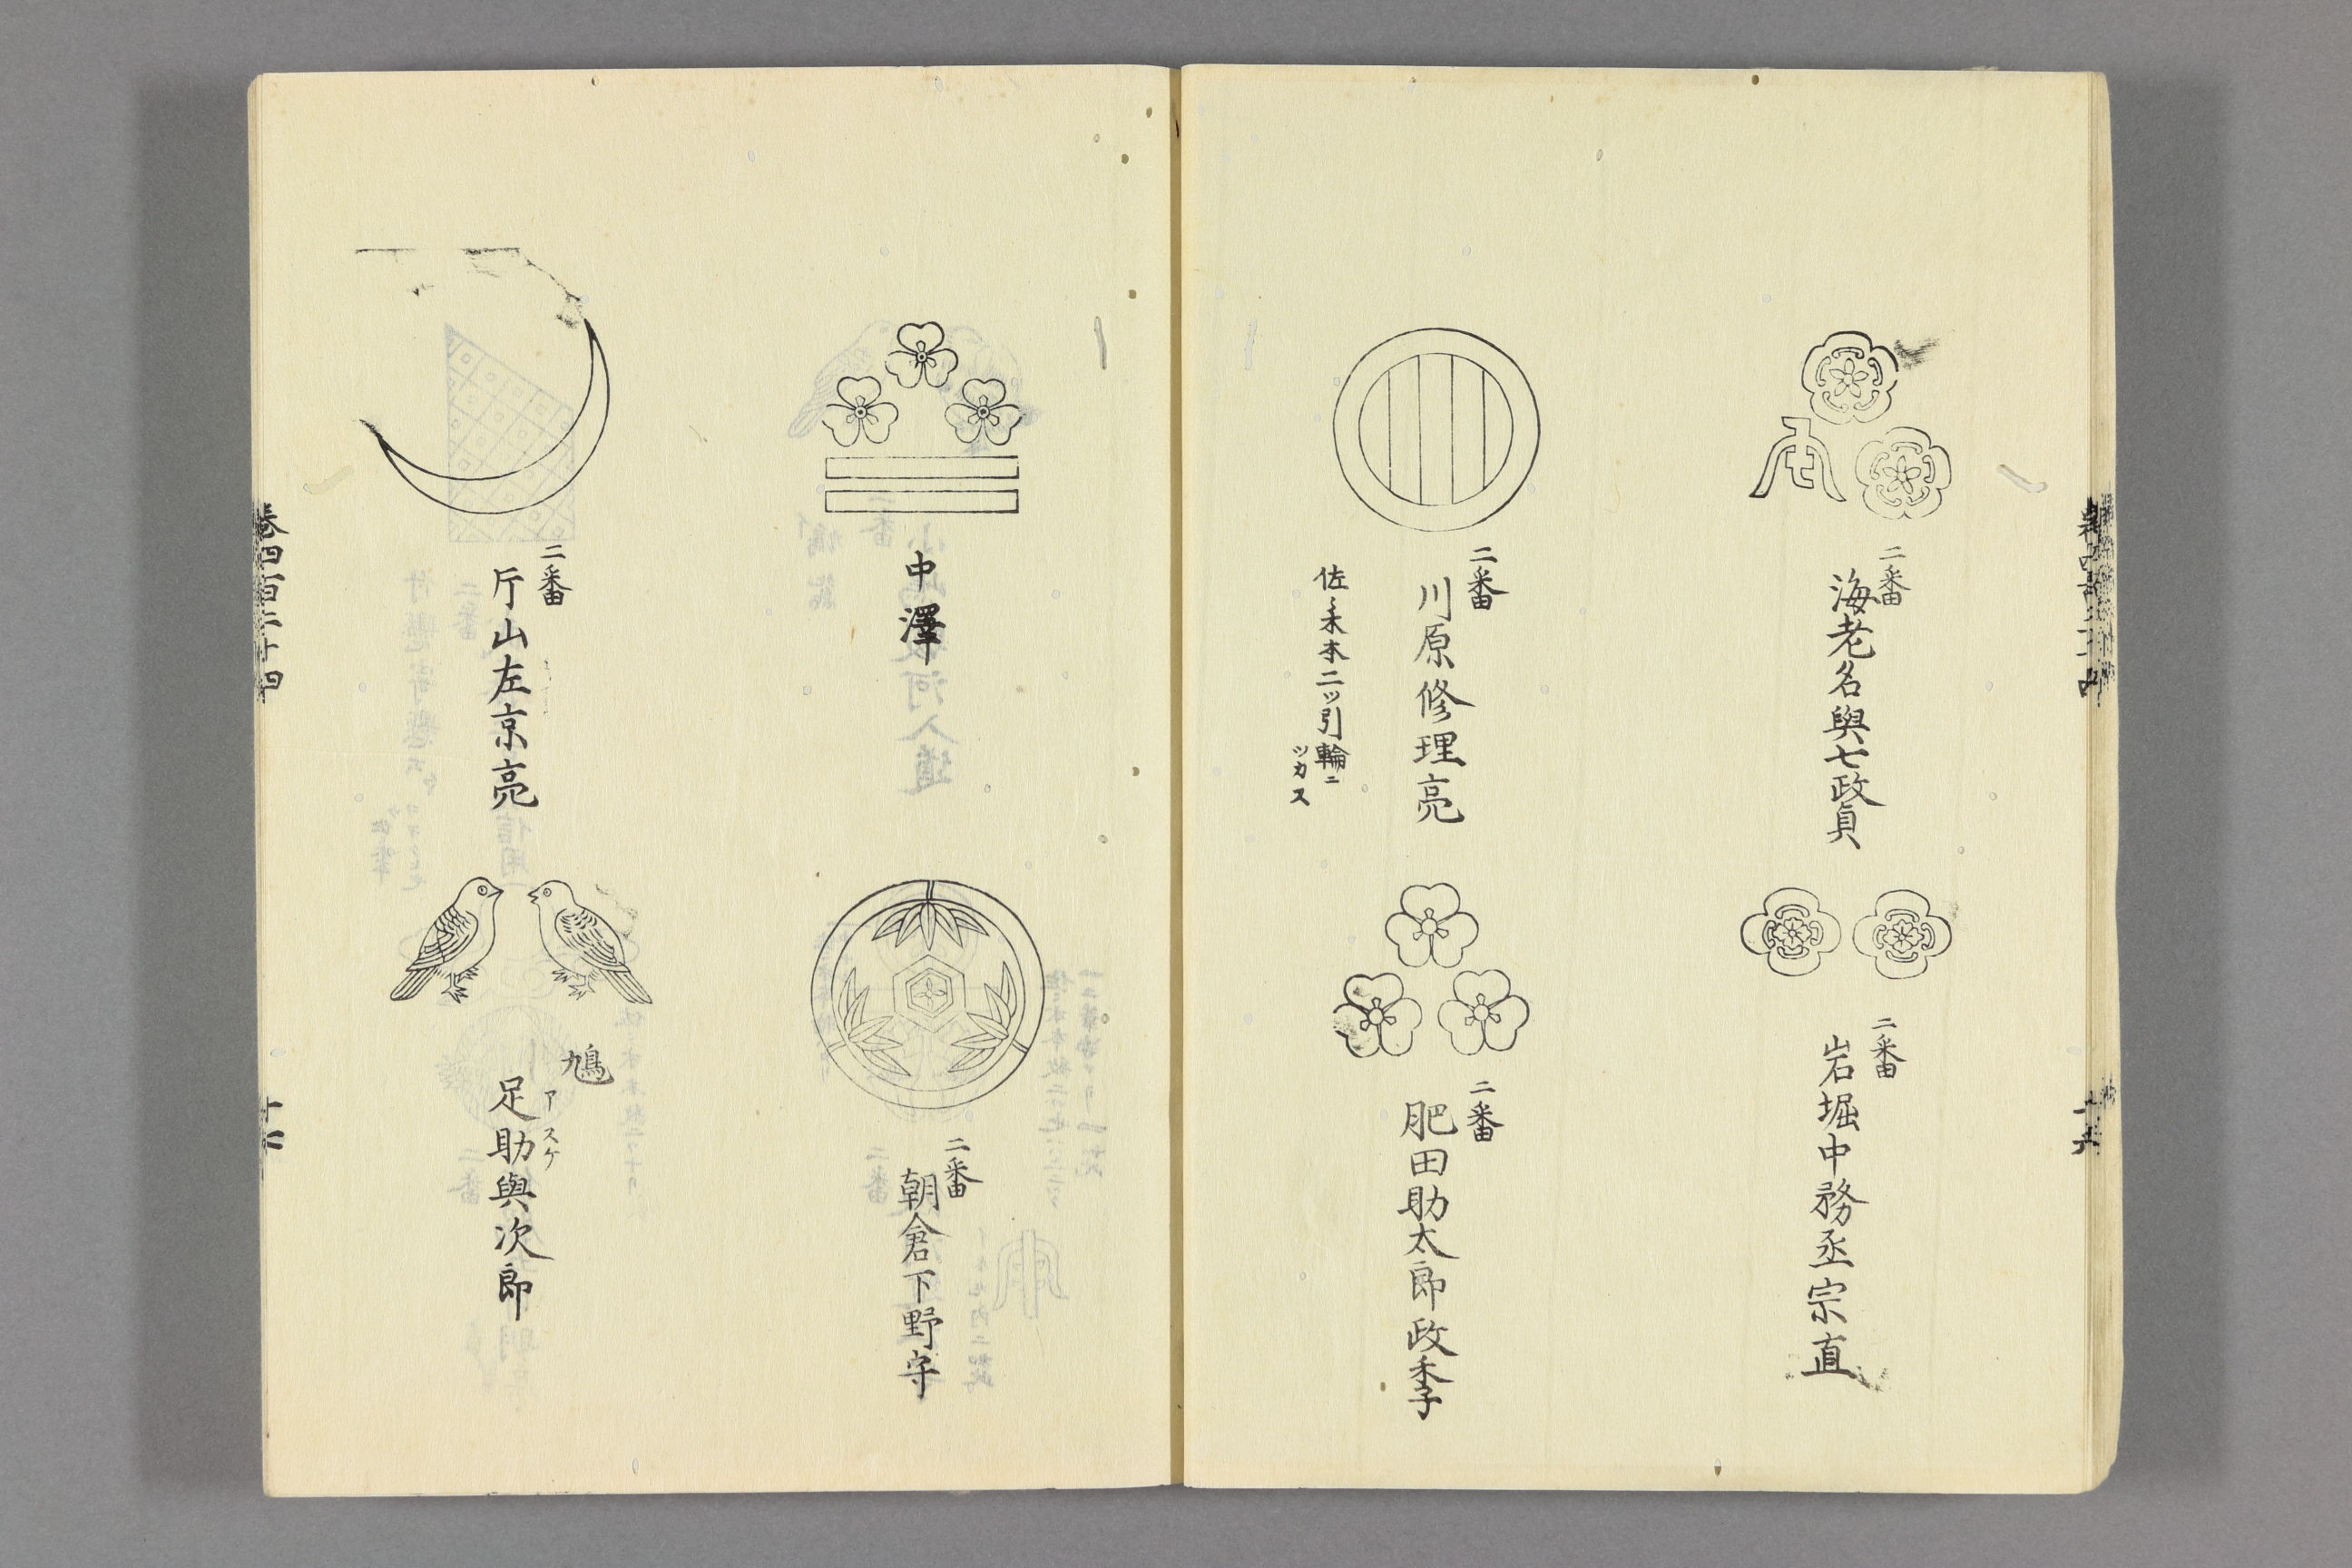 二番
海老名與七政貞
二番
岩堀中務丞宗直
二番
川原修理亮
佐々木本二ツ引輪ニ
ツカス
二番
肥田助太郎政季
中澤
二番
朝倉下野守
二番
片山左京亮
鳩
アスケ
足助與次郎
卷四百二十四